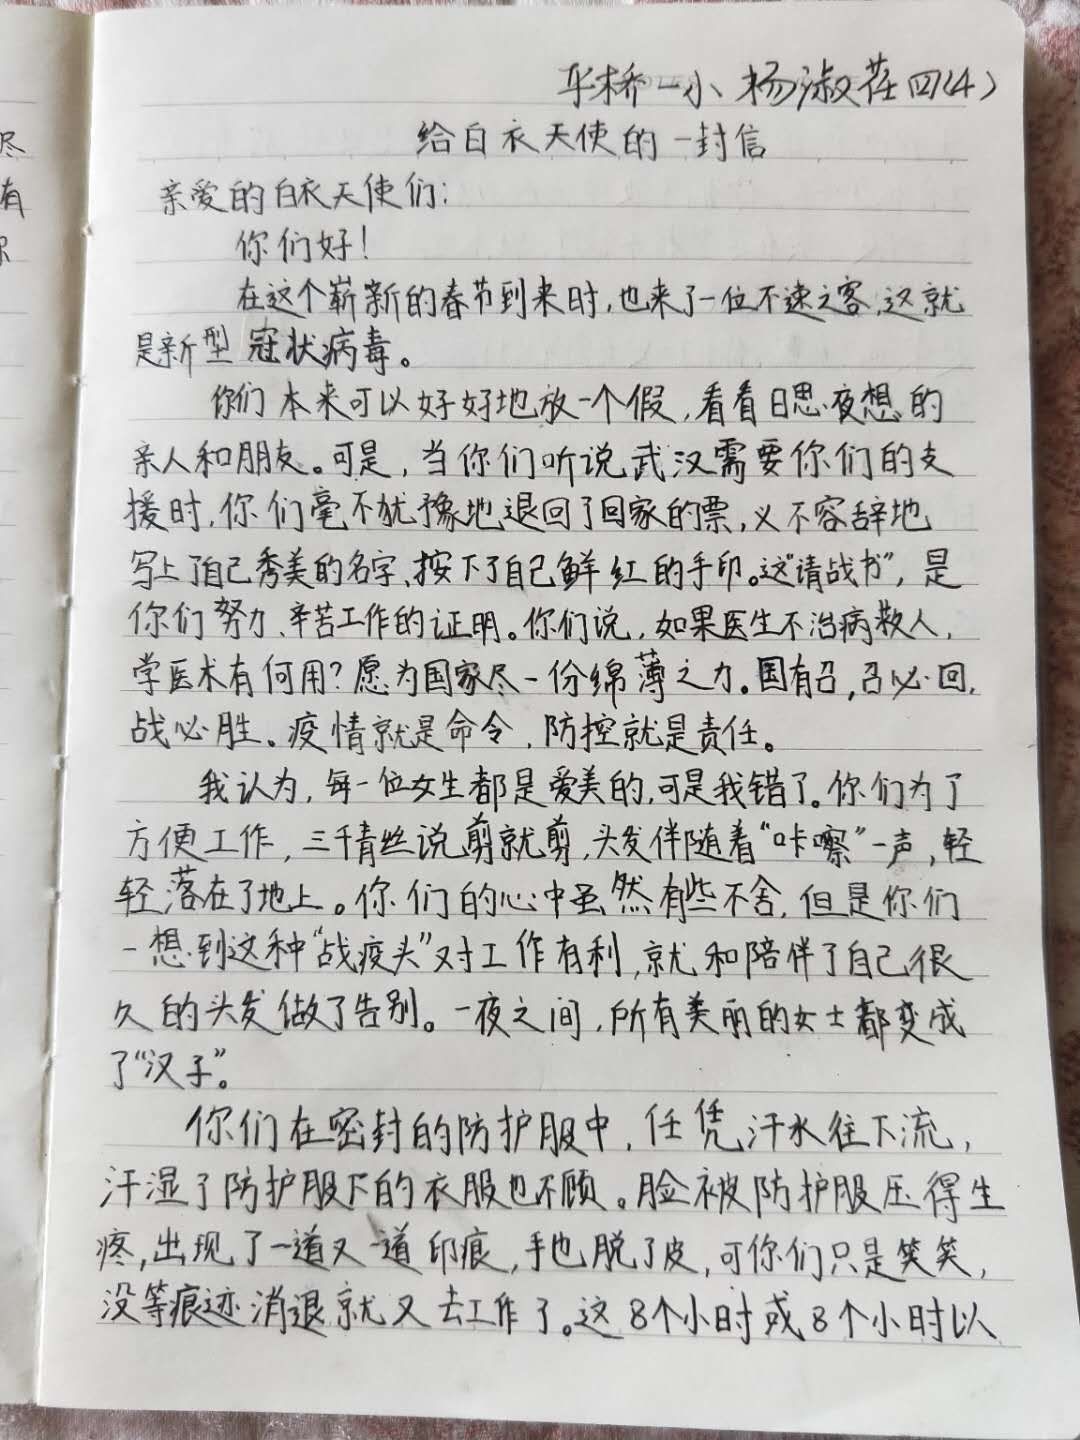 平桥一小 杨淑茬 四(4)
给白衣天使的一封信
亲爱的白衣天使们:
你们好!
在这个崭新的春节到来时,也来了一位不速之客,这就
是新型冠状病毒。
你们本来可以好好地放一个假,看看日思夜想的
亲人和朋友。可是,当你们听说武汉需要你们的支
援时,你们毫不犹豫地退回了回家的票,义不容辞地
写上了自己秀美的名字、按下了自己鲜红的手印。这“请战书”,是
你们努力、辛苦工作的证明。你们说,如果医生不治病救人,
学医术有何用?愿为国家尽一份绵薄之力。国有召,召必回,
战必胜。疫情就是命令,防控就是责任。
我认为,每一位女生都是爱美的,可是我错了。你们为了
方便工作,三千青丝说剪就剪,头发伴随着“咔嚓”一声,轻
轻落在了地上。你们的心中虽然有些不舍,但是你们
一想到这种“战疫头”对工作有利,就和陪伴了自己很
久的头发做了告别。一夜之间,所有美丽的女士都变成
了“汉子”。
你们在密封的防护服中,任凭汗水往下流,
汗湿了防护服下的衣服也不顾。脸被防护服压得生
疼,出现了一道又一道印痕,手也脱了皮,可你们只是笑笑,
没等痕迹消退就又去工作了。这8个小时或8个小时以
尽
有